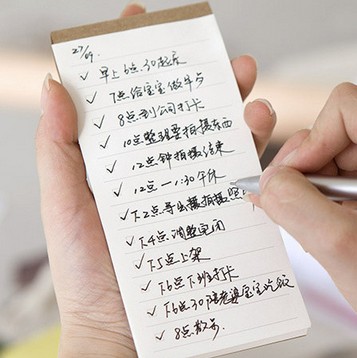 27/09.
✓ 早上6点30起床
✓ 7点给宝宝做早点
✓ 8点到公司打卡
✓ 10点整理要拍摄东西
✓ 12点钟拍摄结束
✓ 12点一1:30午休
✓ 下2点导出摄拍摄照片
✓ 下4点调整更闭
✓ 下5点上架
✓ 下6点下班打卡
✓ 下6点30陪老婆宝宝吃饭
✓ 8点散步.